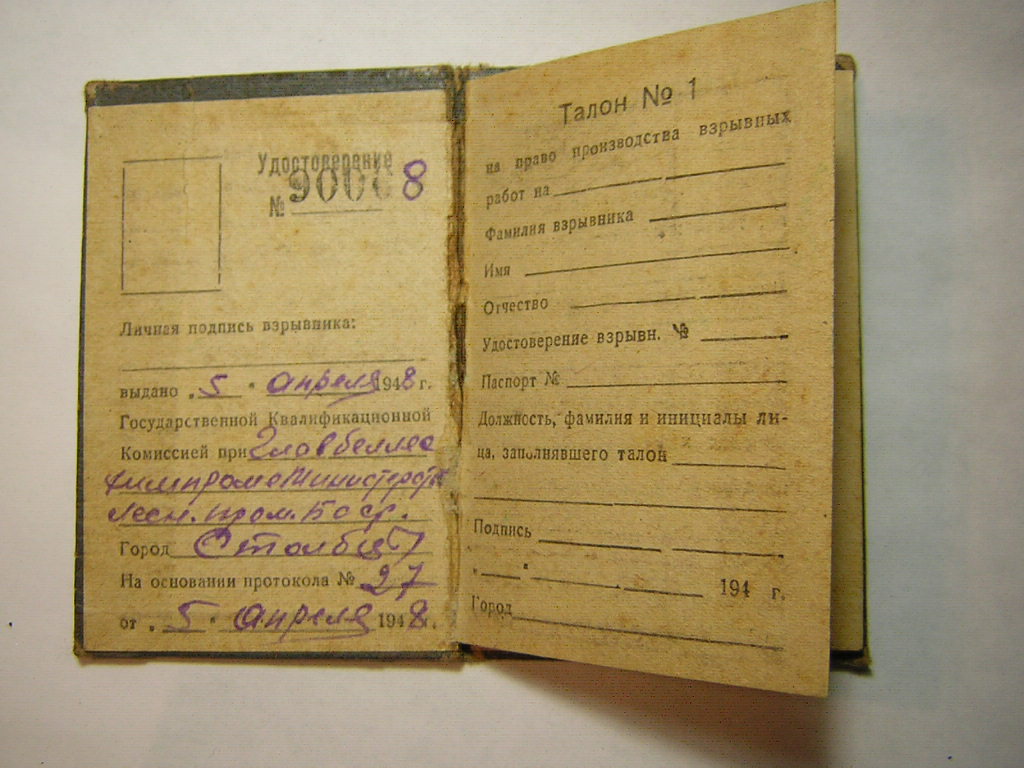 Удостоверение
№ 9006 8
Личная подпись взрывника:
выдано „ 5 " апреля 1948 г.
Государственной Квалификационной
Комиссией при Главбеллес
химпроме Министерства
лесн. пром. Б
Город Столбцы
На основании протокола № 27
от „ 5 " апреля 1948 г.
Талон № 1
на право производства взрывных
работ на
Фамилия взрывника
Имя
Отчество
Удостоверение взрывн. №
Паспорт №
Должность, фамилия и инициалы ли-
ца, заполнявшего талон
Подпись
„ " 194 г.
Город